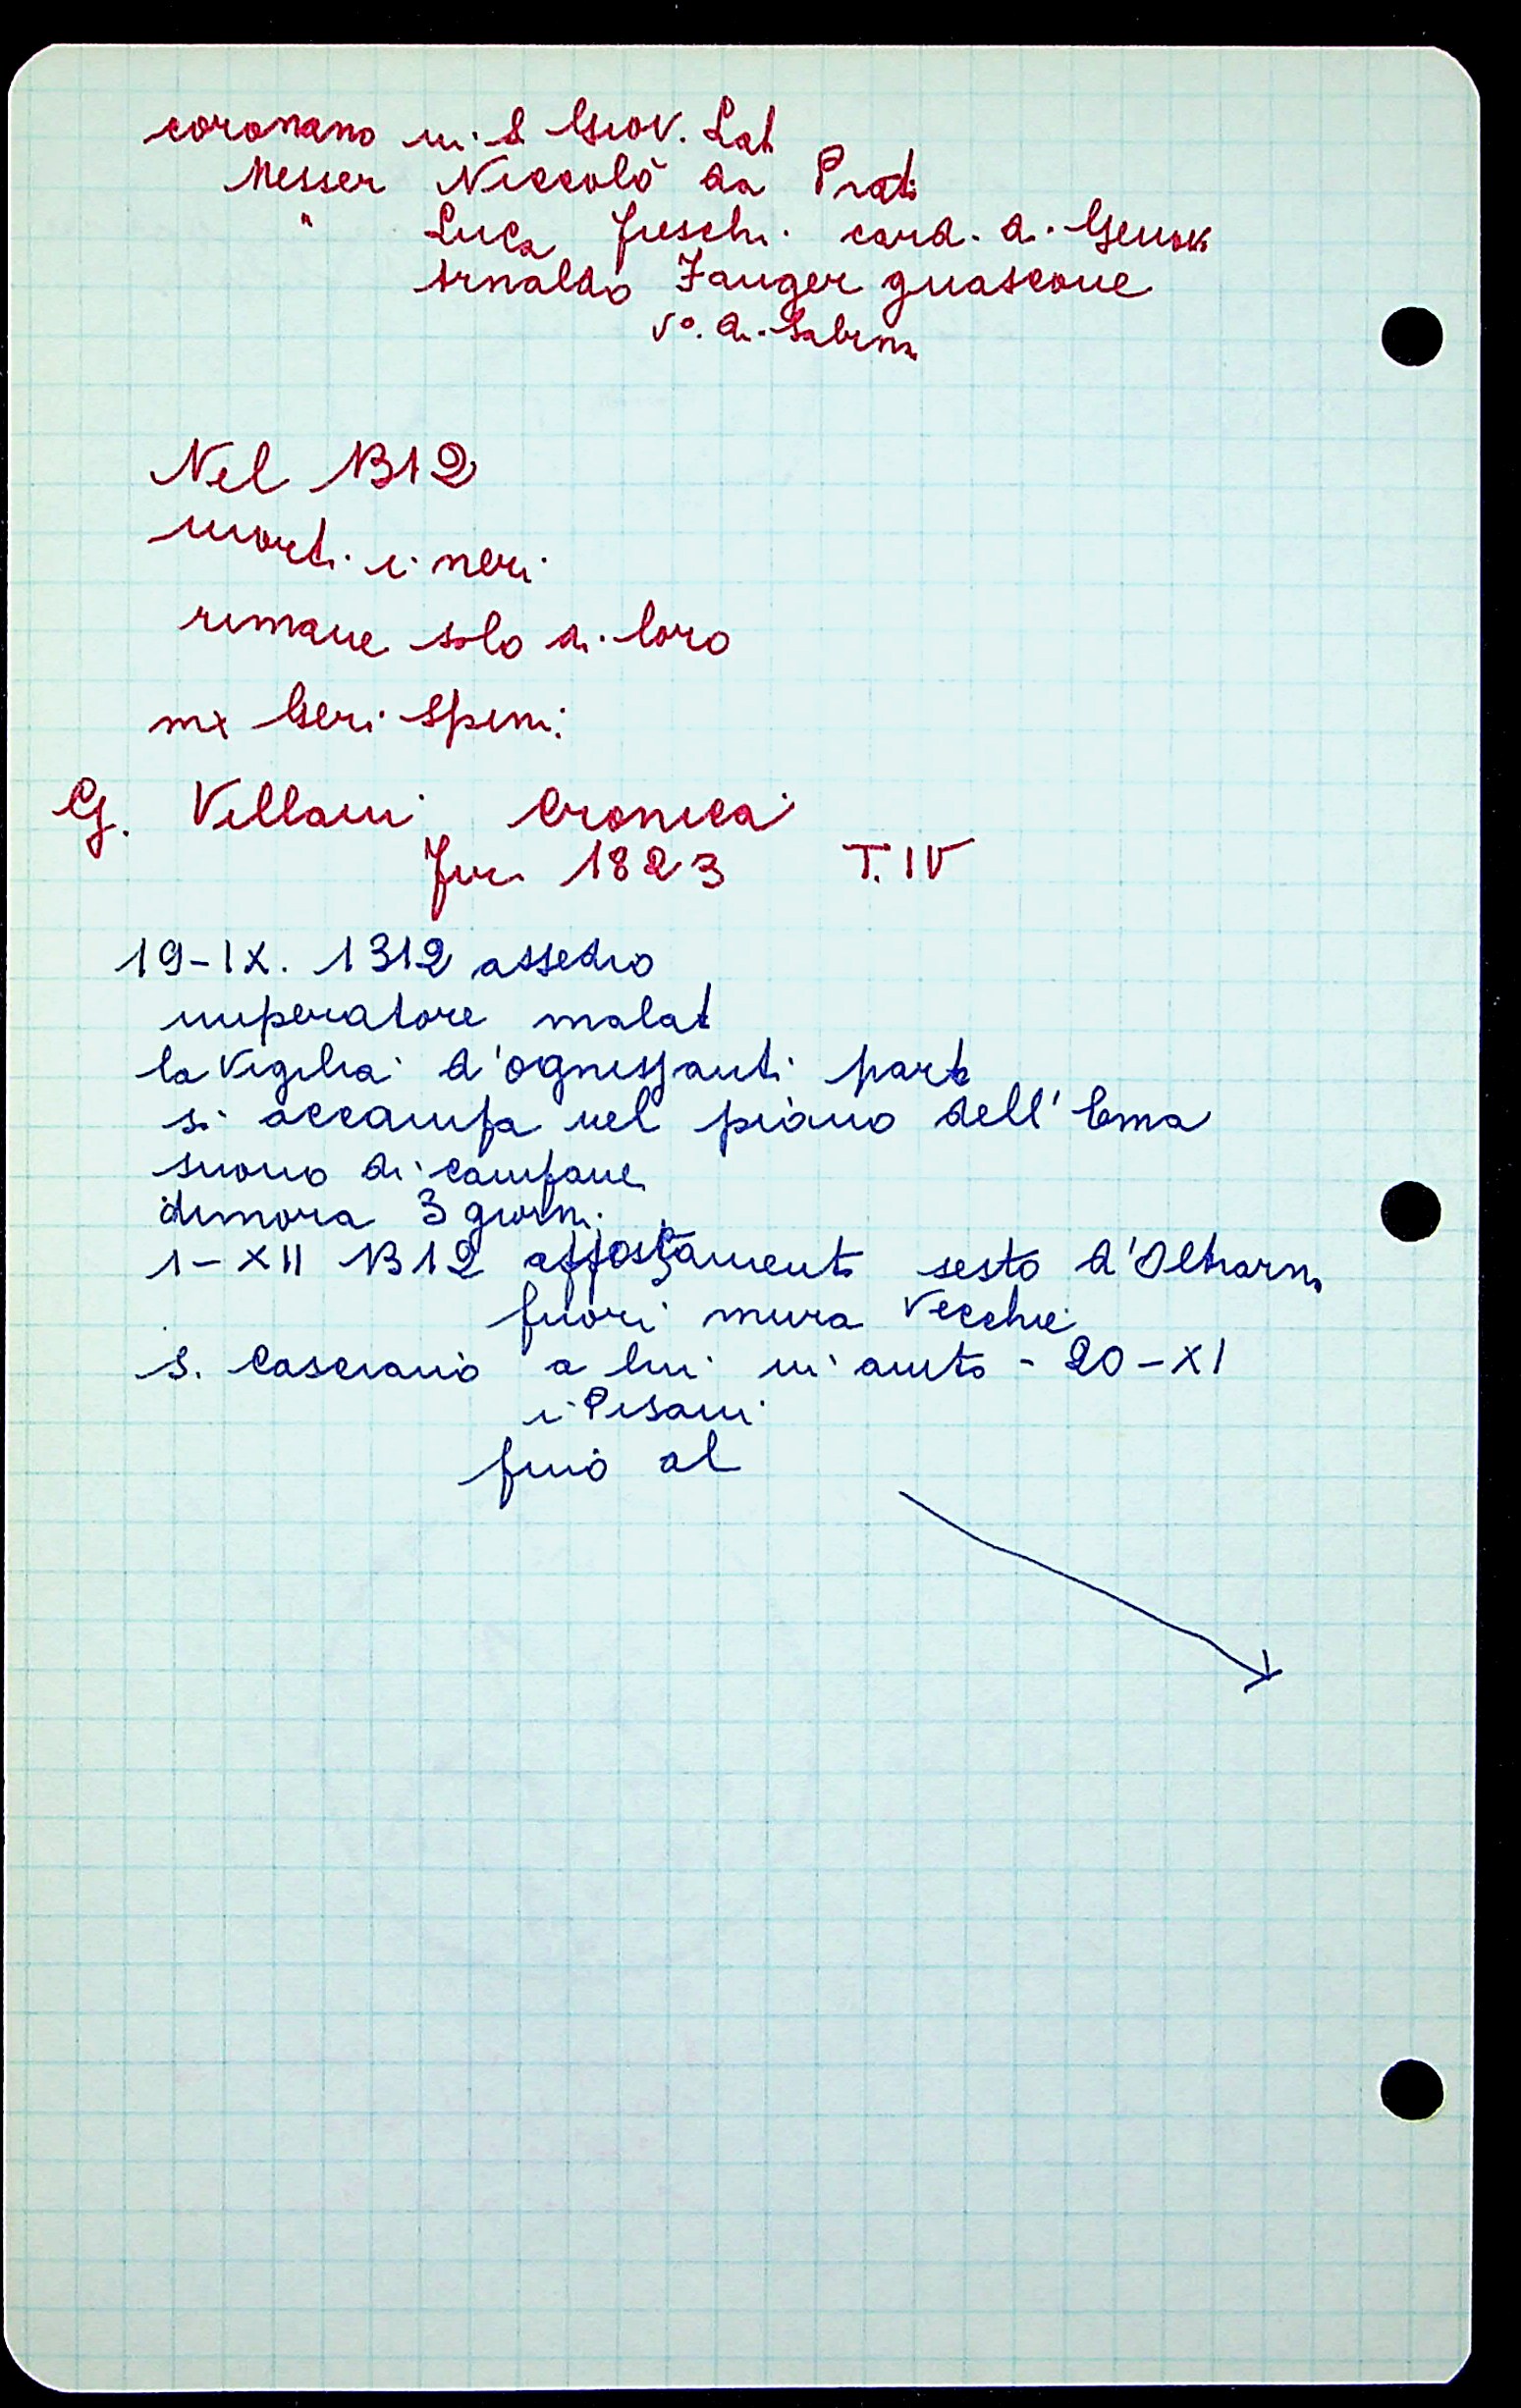 coronano in S Giov. Lat
Messer Niccolò da Prato
" Luca Freschi card. di Genova
Arnaldo Fauger guascone
vo. di Sabina
Nel 1312
morti i neri
rimane solo di loro
mx Geri Spini
G. Villani Cronica
Fir 1823 T. IV
19-IX. 1312 assedio
imperatore malat
la Vigilia d'ognissanti parte
si accampa nel piano dell'Ema
suono di campane
dimora 3 giorni
1-XII 1312 sesto d'Oltrarno
fuori mura Vecchie
S. Casciano a lui in aiuto - 20-XI
i Pisani
fino al